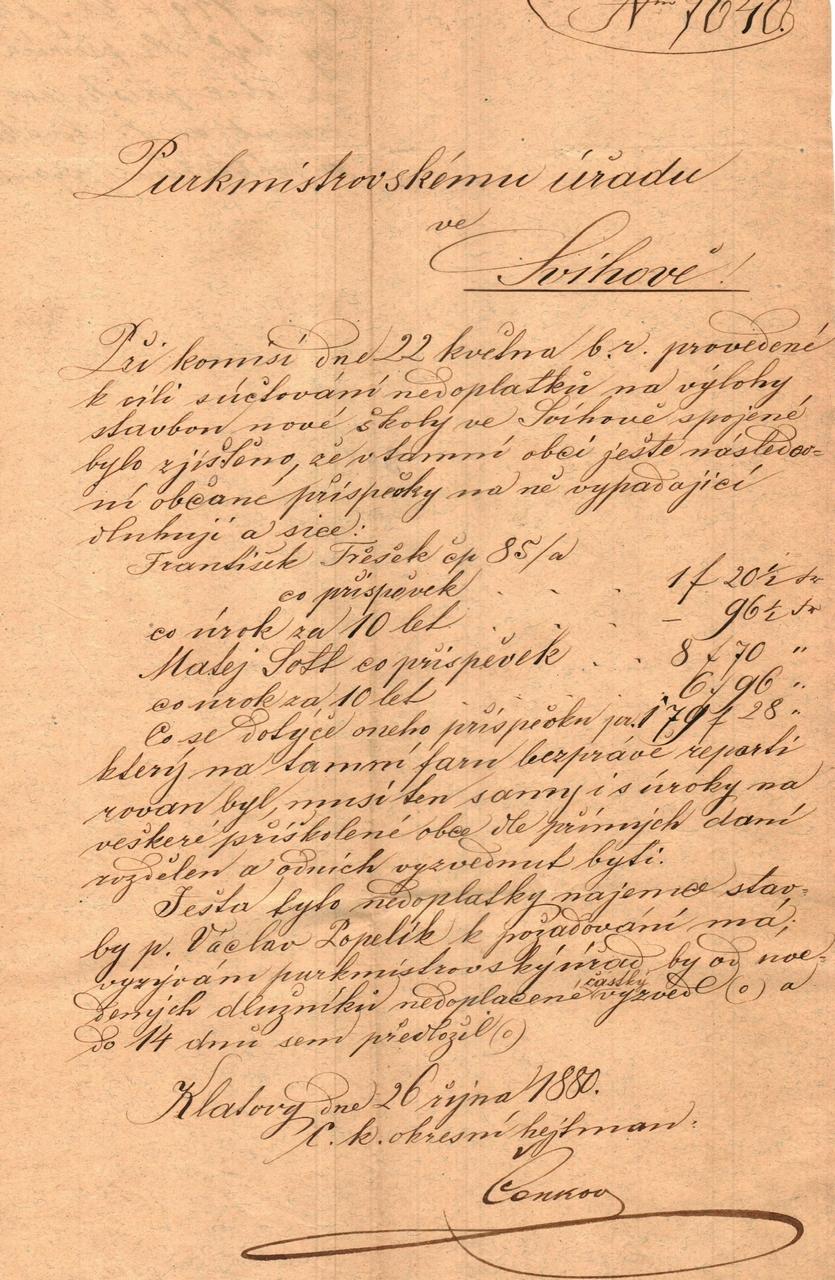 Nro 7640.
Purkmistrovskému úřadu
ve
Svihově!
Při komisí dne 22 května b. r. provedené
k cíli súčtování nedoplatků na výlohy
stavbou nové školy ve Svihově spojené
bylo zjištěno, že v tamní obci ješte následov=
ní občané příspěvky na ně vypadající
dluhují a sice:
František Třešek čp 85/a
co příspěvek . . . 1 f 20½ kr
co úrok za 10 let . . . – 96½ kr
Matej Sott co příspěvek . . 8 f 70 "
co urok za 10 let . . . 6 f 96 "
Co se dotýče oneho příspěvku pr. 179 f 28 "
který na tamní faru bezprávě reparti
rovan byl, musí ten samy i s úroky na
veškeré přiškolené obce dle přímých daní
rozdělen a od nich vyzvednut byti.
Ješta tyto nedoplatky najemce stav=
by p. Václav Popelík k požadování má,
vyzývám purkmistrovský úřad, by od uve=
dených dlužníků nedoplacené částky vyzvedl(o) a
do 14 dnů sem předložil(o)
Klatovy dne 26 října 1880.
C. k. okresní hejtman: